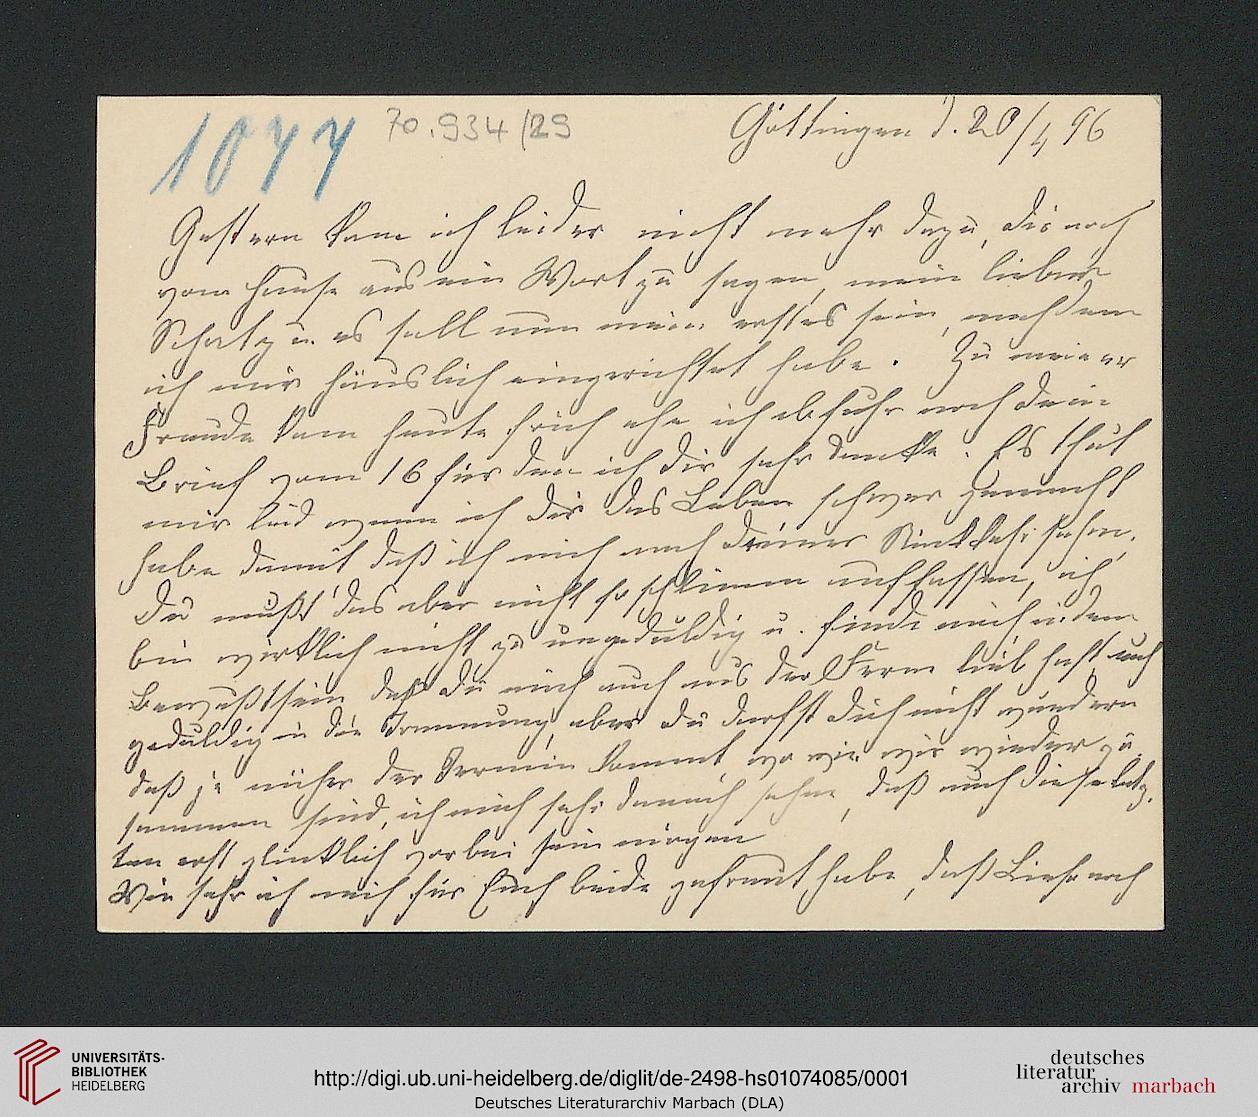 1077 70.934/29 Göttingen d. 20/4 96
Gestern kam ich leider nicht mehr dazu, Dir noch
vom Hause aus ein Wort zu sagen, mein lieber
Schatz u. es soll nun mein erstes sein, nachdem
ich mir häuslich eingerichtet habe. Zu meiner
Freude kam heute früh ehe ich abfuhr noch Dein
Brief vom 16 für den ich Dir sehr danke. Es thut
mir leid wenn ich Dir das Leben schwer gemacht
habe damit daß ich mich nach Deiner Rückkehr sehne.
Du mußt das aber nicht so schlimm auffassen, ich
bin wirklich nicht zu ungeduldig u. finde mich in dem
Bewußtsein daß Du mich auch aus der Ferne lieb hast, auch
geduldig in die Trennung, aber Du darfst Dich nicht wundern
daß je näher der Termin kommt wo wir wieder zu-
sammen sind, ich mich sehr danach sehne, daß auch diese letz-
ten erst glücklich vorbei sein mögen
Wie sehr ich mich für Euch beide gefreut habe, daß noch
UNIVERSITÄTS-
BIBLIOTHEK
HEIDELBERG
http://digi.ub.uni-heidelberg.de/diglit/de-2498-hs01074085/0001
Deutsches Literaturarchiv Marbach (DLA)
deutsches
literatur
archiv marbach